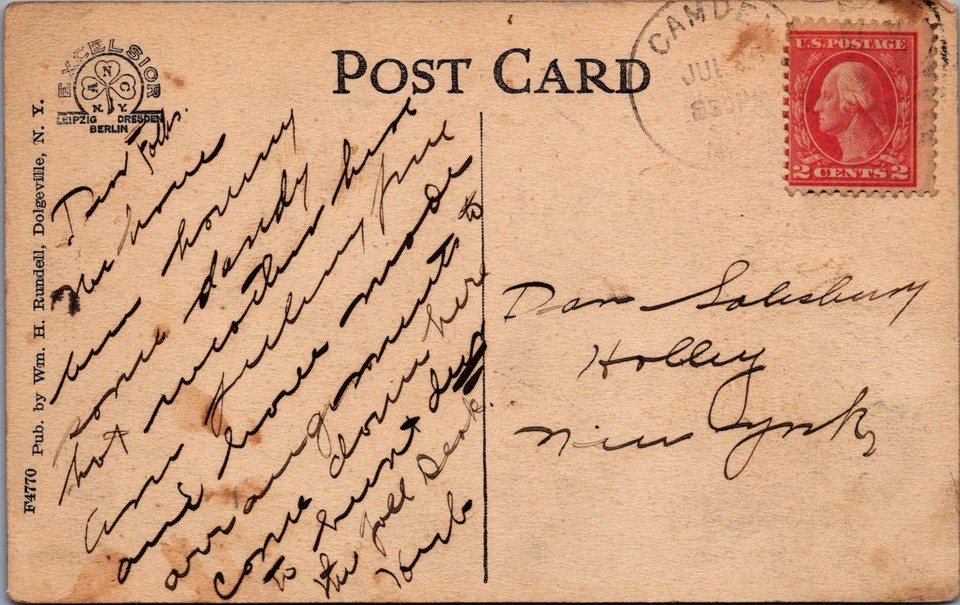 EXCELSIOR
A N C
N. Y.
LEIPZIG DRESDEN
BERLIN
POST CARD
CAMDEN
JUL
U.S. POSTAGE
2 CENTS 2
F4770 Pub. by Wm. H. Rundell, Dolgeville, N. Y.
Dear Folks.
We have
been having
some dandy
hot weather here
am feeling fine
and have made
arrangements to
come down here
to hunt deer
the fall Deak.
Herb
Dan Salesbury
Holley
New York